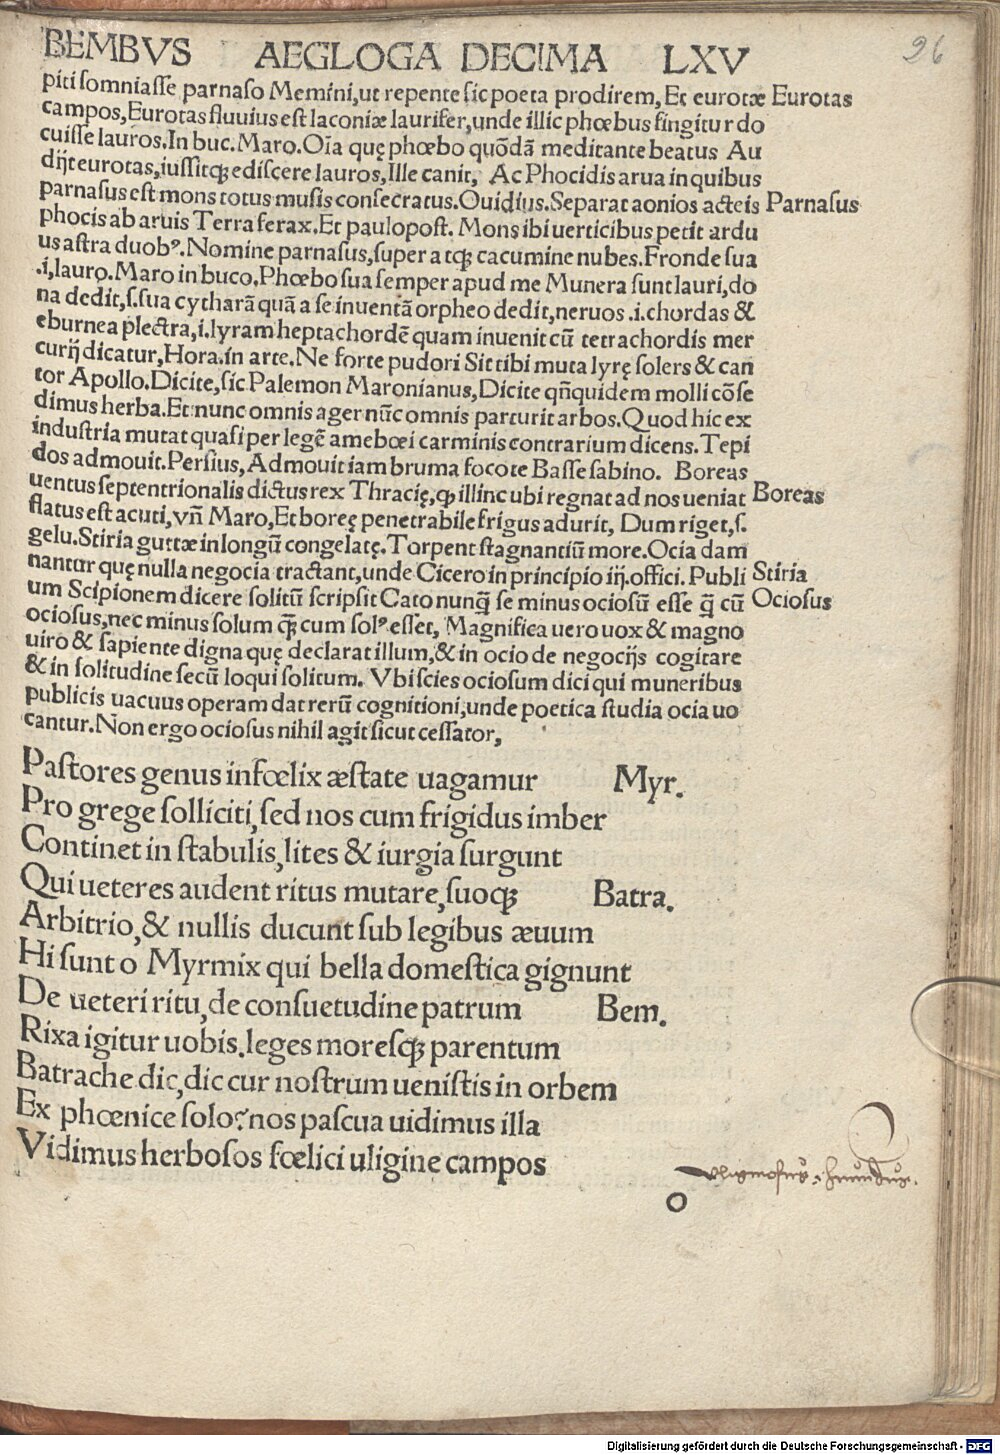 BEMBVS AEGLOGA DECIMA LXV
26
piti somniasse parnaso Memini, ut repente sic poeta prodirem, Et eurotæ Eurotas
campos, Eurotas fluuius est laconiæ laurifer, unde illic phœbus fingitur do
cuisse lauros. In buc. Maro. Oĩa quę phœbo quõdã meditante beatus Au
dijt eurotas, iussitqꝫ ediscere lauros, Ille canit, Ac Phocidis arua in quibus
parnasus est mons totus musis consecratus. Ouidius. Separat aonios acteis Parnasus
phocis ab aruis Terra ferax. Et paulopost. Mons ibi uerticibus petit ardu
us astra duobꝰ. Nomine parnasus, super atqꝫ cacumine nubes. Fronde sua
.i, lauro. Maro in buco. Phœbo sua semper apud me Munera sunt lauri, do
na dedit, s. sua cytharã quã a se inuentã orpheo dedit, neruos .i. chordas &
eburnea plectra, i. lyram heptachordẽ quam inuenit cũ tetrachordis mer
curij dicatur, Hora. in arte. Ne forte pudori Sit tibi muta lyrę solers & can
tor Apollo. Dicite, sic Palemon Maronianus, Dicite qñquidem molli cõse
dimus herba. Et nunc omnis ager nũc omnis parturit arbos. Quod hic ex
industria mutat quasi per legẽ amebœi carminis contrarium dicens. Tepi
dos admouit. Persius, Admouit iam bruma foco te Basse sabino. Boreas
uentus septentrionalis dictus rex Thracię, qꝫ illinc ubi regnat ad nos ueniat Boreas
flatus est acuti, vñ Maro, Et boreę penetrabile frigus adurit, Dum riget, s.
gelu. Stiria guttæ in longũ congelatę. Torpent stagnantiũ more. Ocia dam
nantur quę nulla negocia tractant, unde Cicero in principio iij. offici. Publi Stiria
um Scipionem dicere solitũ scripsit Cato nunq̃ se minus ociosũ esse q̃ cũ Ociosus
ociosus, nec minus solum qꝫ cum solꝰ esset, Magnifica uero uox & magno
uiro & sapiente digna quę declarat illum, & in ocio de negocijs cogitare
& in solitudine secũ loqui solitum. Vbi scies ociosum dici qui muneribus
publicis uacuus operam dat rerũ cognitioni, unde poetica studia ocia uo
cantur. Non ergo ociosus nihil agit sicut cessator,
Pastores genus infœlix æstate uagamur Myr.
Pro grege solliciti, sed nos cum frigidus imber
Continet in stabulis, lites & iurgia surgunt
Qui ueteres audent ritus mutare, suoqꝫ Batra.
Arbitrio, & nullis ducunt sub legibus æuum
Hi sunt o Myrmix qui bella domestica gignunt
De ueteri ritu, de consuetudine patrum Bem.
Rixa igitur uobis. leges moresqꝫ parentum
Batrache dic, dic cur nostrum uenistis in orbem
Ex phœnice solo? nos pascua uidimus illa
Vidimus herbosos fœlici uligine campos
o
Digitalisierung gefördert durch die Deutsche Forschungsgemeinschaft - DFG